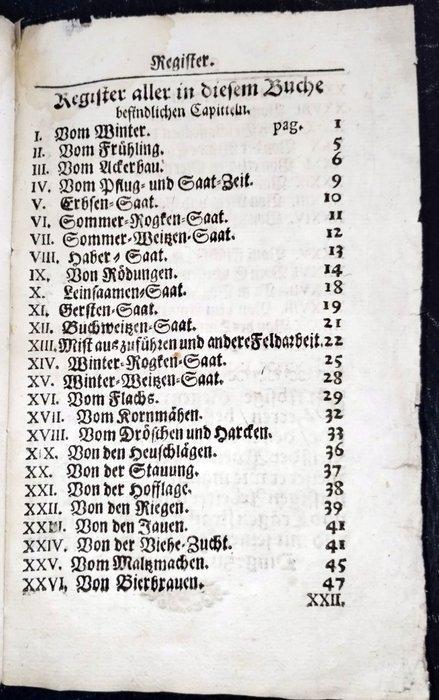 Register.
Register aller in diesem Buche
befindlichen Capitteln.
I. Vom Winter. pag. 1
II. Vom Frühling. 5
III. Vom Ackerbau. 6
IV. Vom Pflug- und Saat-Zeit. 9
V. Erbsen-Saat. 10
VI. Sommer-Rogken-Saat. 11
VII. Sommer-Weitzen-Saat. 12
VIII. Haber-Saat. 13
IX. Von Rödungen. 14
X. Leinsaamen-Saat. 18
XI. Gersten-Saat. 19
XII. Buchweitzen-Saat. 21
XIII. Mist auszuführen und andere Feldarbeit. 22
XIV. Winter-Rogken-Saat. 25
XV. Winter-Weitzen-Saat. 28
XVI. Vom Flachs. 29
XVII. Vom Kornmähen. 32
XVIII. Vom Dröschen und Harcken. 33
XIX. Von den Heuschlägen. 36
XX. Von der Stauung. 37
XXI. Von der Hofflage. 38
XXII. Von den Riegen. 39
XXIII. Von den Jauen. 41
XXIV. Von der Viehe-Zucht. 41
XXV. Vom Maltzmachen. 45
XXVI. Von Bierbrauen. 47
XXII.